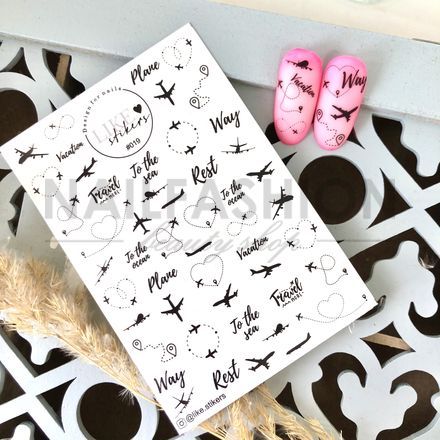 Design for nails
I LIKE
stikers
#019
Plane
Way
Vacation
To the
sea
Rest
Travel
To the
ocean
To the
ocean
Vacation
Plane
Travel
To the
sea
Way
Rest
@like.stikers
Vacation
Way
NAILFASHION
beauty shop